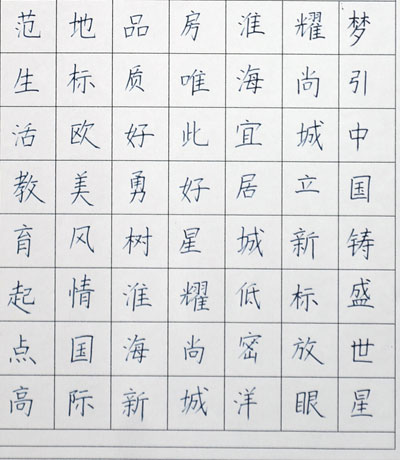 梦引中国铸盛世星
耀尚城立新标放眼
淮海宜居城低密洋
房唯此好星耀尚城
品质好勇树淮海新
地标欧美风情国际
范生活教育起点高